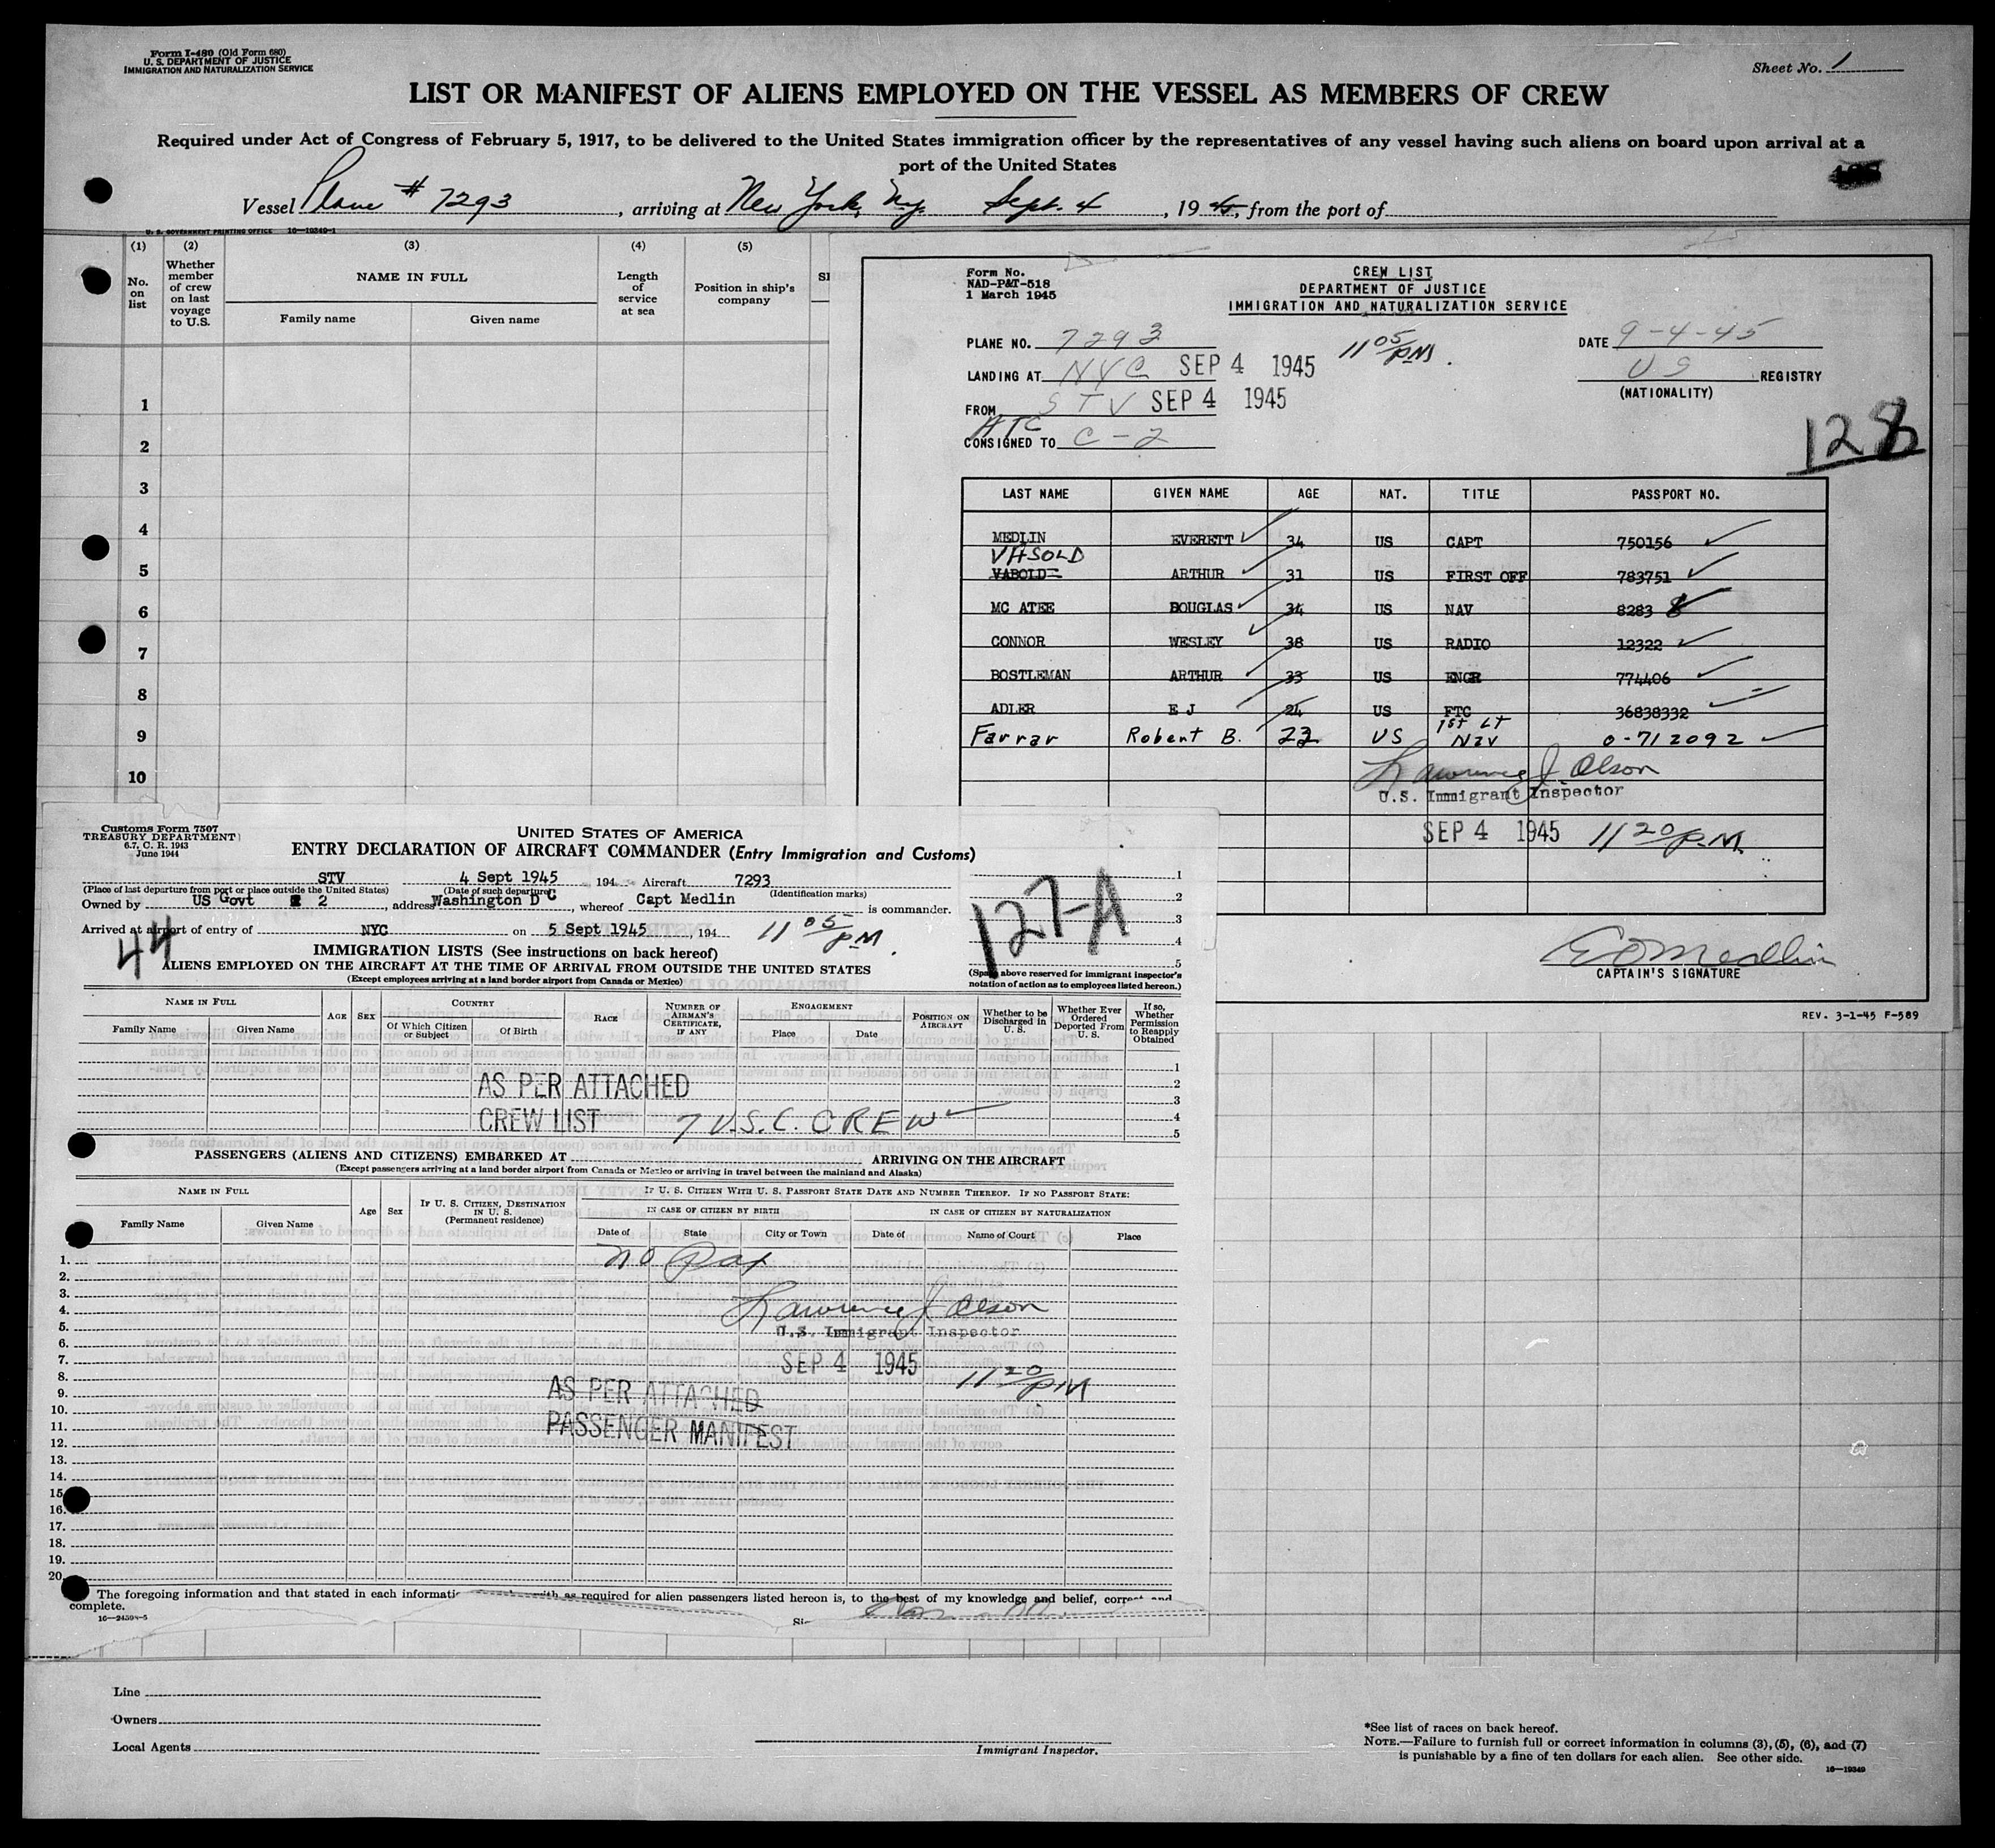 Form I-480 (Old Form 680)
U. S. DEPARTMENT OF JUSTICE
IMMIGRATION AND NATURALIZATION SERVICE
Sheet No. 1
LIST OR MANIFEST OF ALIENS EMPLOYED ON THE VESSEL AS MEMBERS OF CREW
Required under Act of Congress of February 5, 1917, to be delivered to the United States immigration officer by the representatives of any vessel having such aliens on board upon arrival at a
port of the United States
Vessel Plane # 7293, arriving at New York, N.Y. Sept. 4, 1945, from the port of
U. S. GOVERNMENT PRINTING OFFICE 16—19349-1
(1) (2) (3) (4) (5)
No. on list
Whether member of crew on last voyage to U.S.
NAME IN FULL
Family name Given name
Length of service at sea
Position in ship's company
1
2
3
4
5
6
7
8
9
10
Form No.
NAD-P&T-518
1 March 1945
CREW LIST
DEPARTMENT OF JUSTICE
IMMIGRATION AND NATURALIZATION SERVICE
PLANE NO. 7293 11 05/PM. DATE 9-4-45
LANDING AT NYC SEP 4 1945 US REGISTRY
(NATIONALITY)
FROM STV SEP 4 1945
ATC
CONSIGNED TO C-2
128
LAST NAME GIVEN NAME AGE NAT. TITLE PASSPORT NO.
MEDLIN EVERETT 34 US CAPT 750156
VHSOLD
VABOLD ARTHUR 31 US FIRST OFF 783751
MC ATEE DOUGLAS 34 US NAV 8283 8
CONNOR WESLEY 38 US RADIO 12322
BOSTLEMAN ARTHUR 33 US ENGR 774406
ADLER E J 24 US FTC 36838332
Farrar Robert B. 22 US 1st Lt Nav 0-712092
Lawrence J. Olson
U.S. Immigrant Inspector
SEP 4 1945 11 20/P.M.
E O Medlin
CAPTAIN'S SIGNATURE
REV. 3-1-45 F-589
Customs Form 7507
TREASURY DEPARTMENT
6.7, C. R. 1943
June 1944
UNITED STATES OF AMERICA
ENTRY DECLARATION OF AIRCRAFT COMMANDER (Entry Immigration and Customs)
STV 4 Sept 1945 194 Aircraft 7293
(Place of last departure from port or place outside the United States) (Date of such departure) (Identification marks)
Owned by US Govt 2, address Washington D C, whereof Capt Medlin is commander.
Arrived at airport of entry of NYC on 5 Sept 1945, 194 11 05/PM.
44
127-A
1
2
3
4
5
(Space above reserved for immigrant inspector's notation of action as to employees listed hereon.)
IMMIGRATION LISTS (See instructions on back hereof)
ALIENS EMPLOYED ON THE AIRCRAFT AT THE TIME OF ARRIVAL FROM OUTSIDE THE UNITED STATES
(Except employees arriving at a land border airport from Canada or Mexico)
NAME IN FULL AGE SEX COUNTRY RACE NUMBER OF AIRMAN'S CERTIFICATE, IF ANY ENGAGEMENT POSITION ON AIRCRAFT Whether to be Discharged in U. S. Whether Ever Ordered Deported From U. S. If so, Whether Permission to Reapply Obtained
Family Name Given Name Of Which Citizen or Subject Of Birth Place Date
1
2
3
4
5
AS PER ATTACHED
CREW LIST 7 U.S.C. CREW
PASSENGERS (ALIENS AND CITIZENS) EMBARKED AT ARRIVING ON THE AIRCRAFT
(Except passengers arriving at a land border airport from Canada or Mexico or arriving in travel between the mainland and Alaska)
NAME IN FULL Age Sex IF U. S. CITIZEN, DESTINATION IN U. S. (Permanent residence) IF U. S. CITIZEN WITH U. S. PASSPORT STATE DATE AND NUMBER THEREOF. IF NO PASSPORT STATE:
IN CASE OF CITIZEN BY BIRTH IN CASE OF CITIZEN BY NATURALIZATION
Family Name Given Name Date of State City or Town Date of Name of Court Place
1.
2.
3.
4.
5.
6.
7.
8.
9.
10.
11.
12.
13.
14.
15.
16.
17.
18.
19.
20.
no Pax
Lawrence J. Olson
U.S. Immigrant Inspector
SEP 4 1945 11 20/PM
AS PER ATTACHED
PASSENGER MANIFEST
The foregoing information and that stated in each as required for alien passengers listed hereon is, to the best of my knowledge and belief, correct and
complete.
16—24598-5
Line
Owners
Local Agents
Immigrant Inspector.
*See list of races on back hereof.
NOTE.—Failure to furnish full or correct information in columns (3), (5), (6), and (7)
is punishable by a fine of ten dollars for each alien. See other side.
16—19349